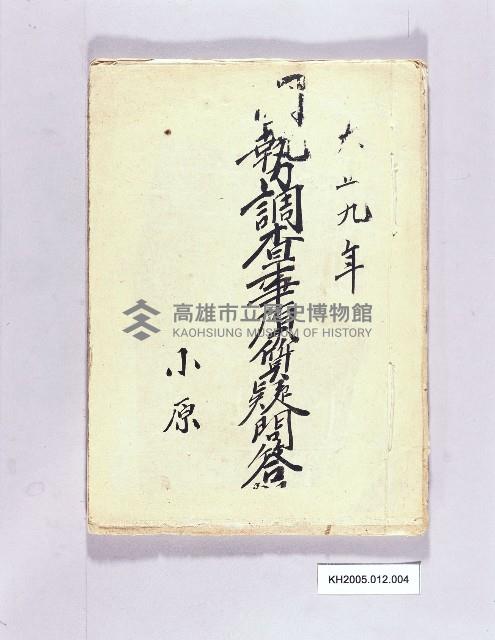 大正九年
勢調查事項質疑問答
小原
高雄市立歷史博物館
KAOHSIUNG MUSEUM OF HISTORY
KH2005.012.004